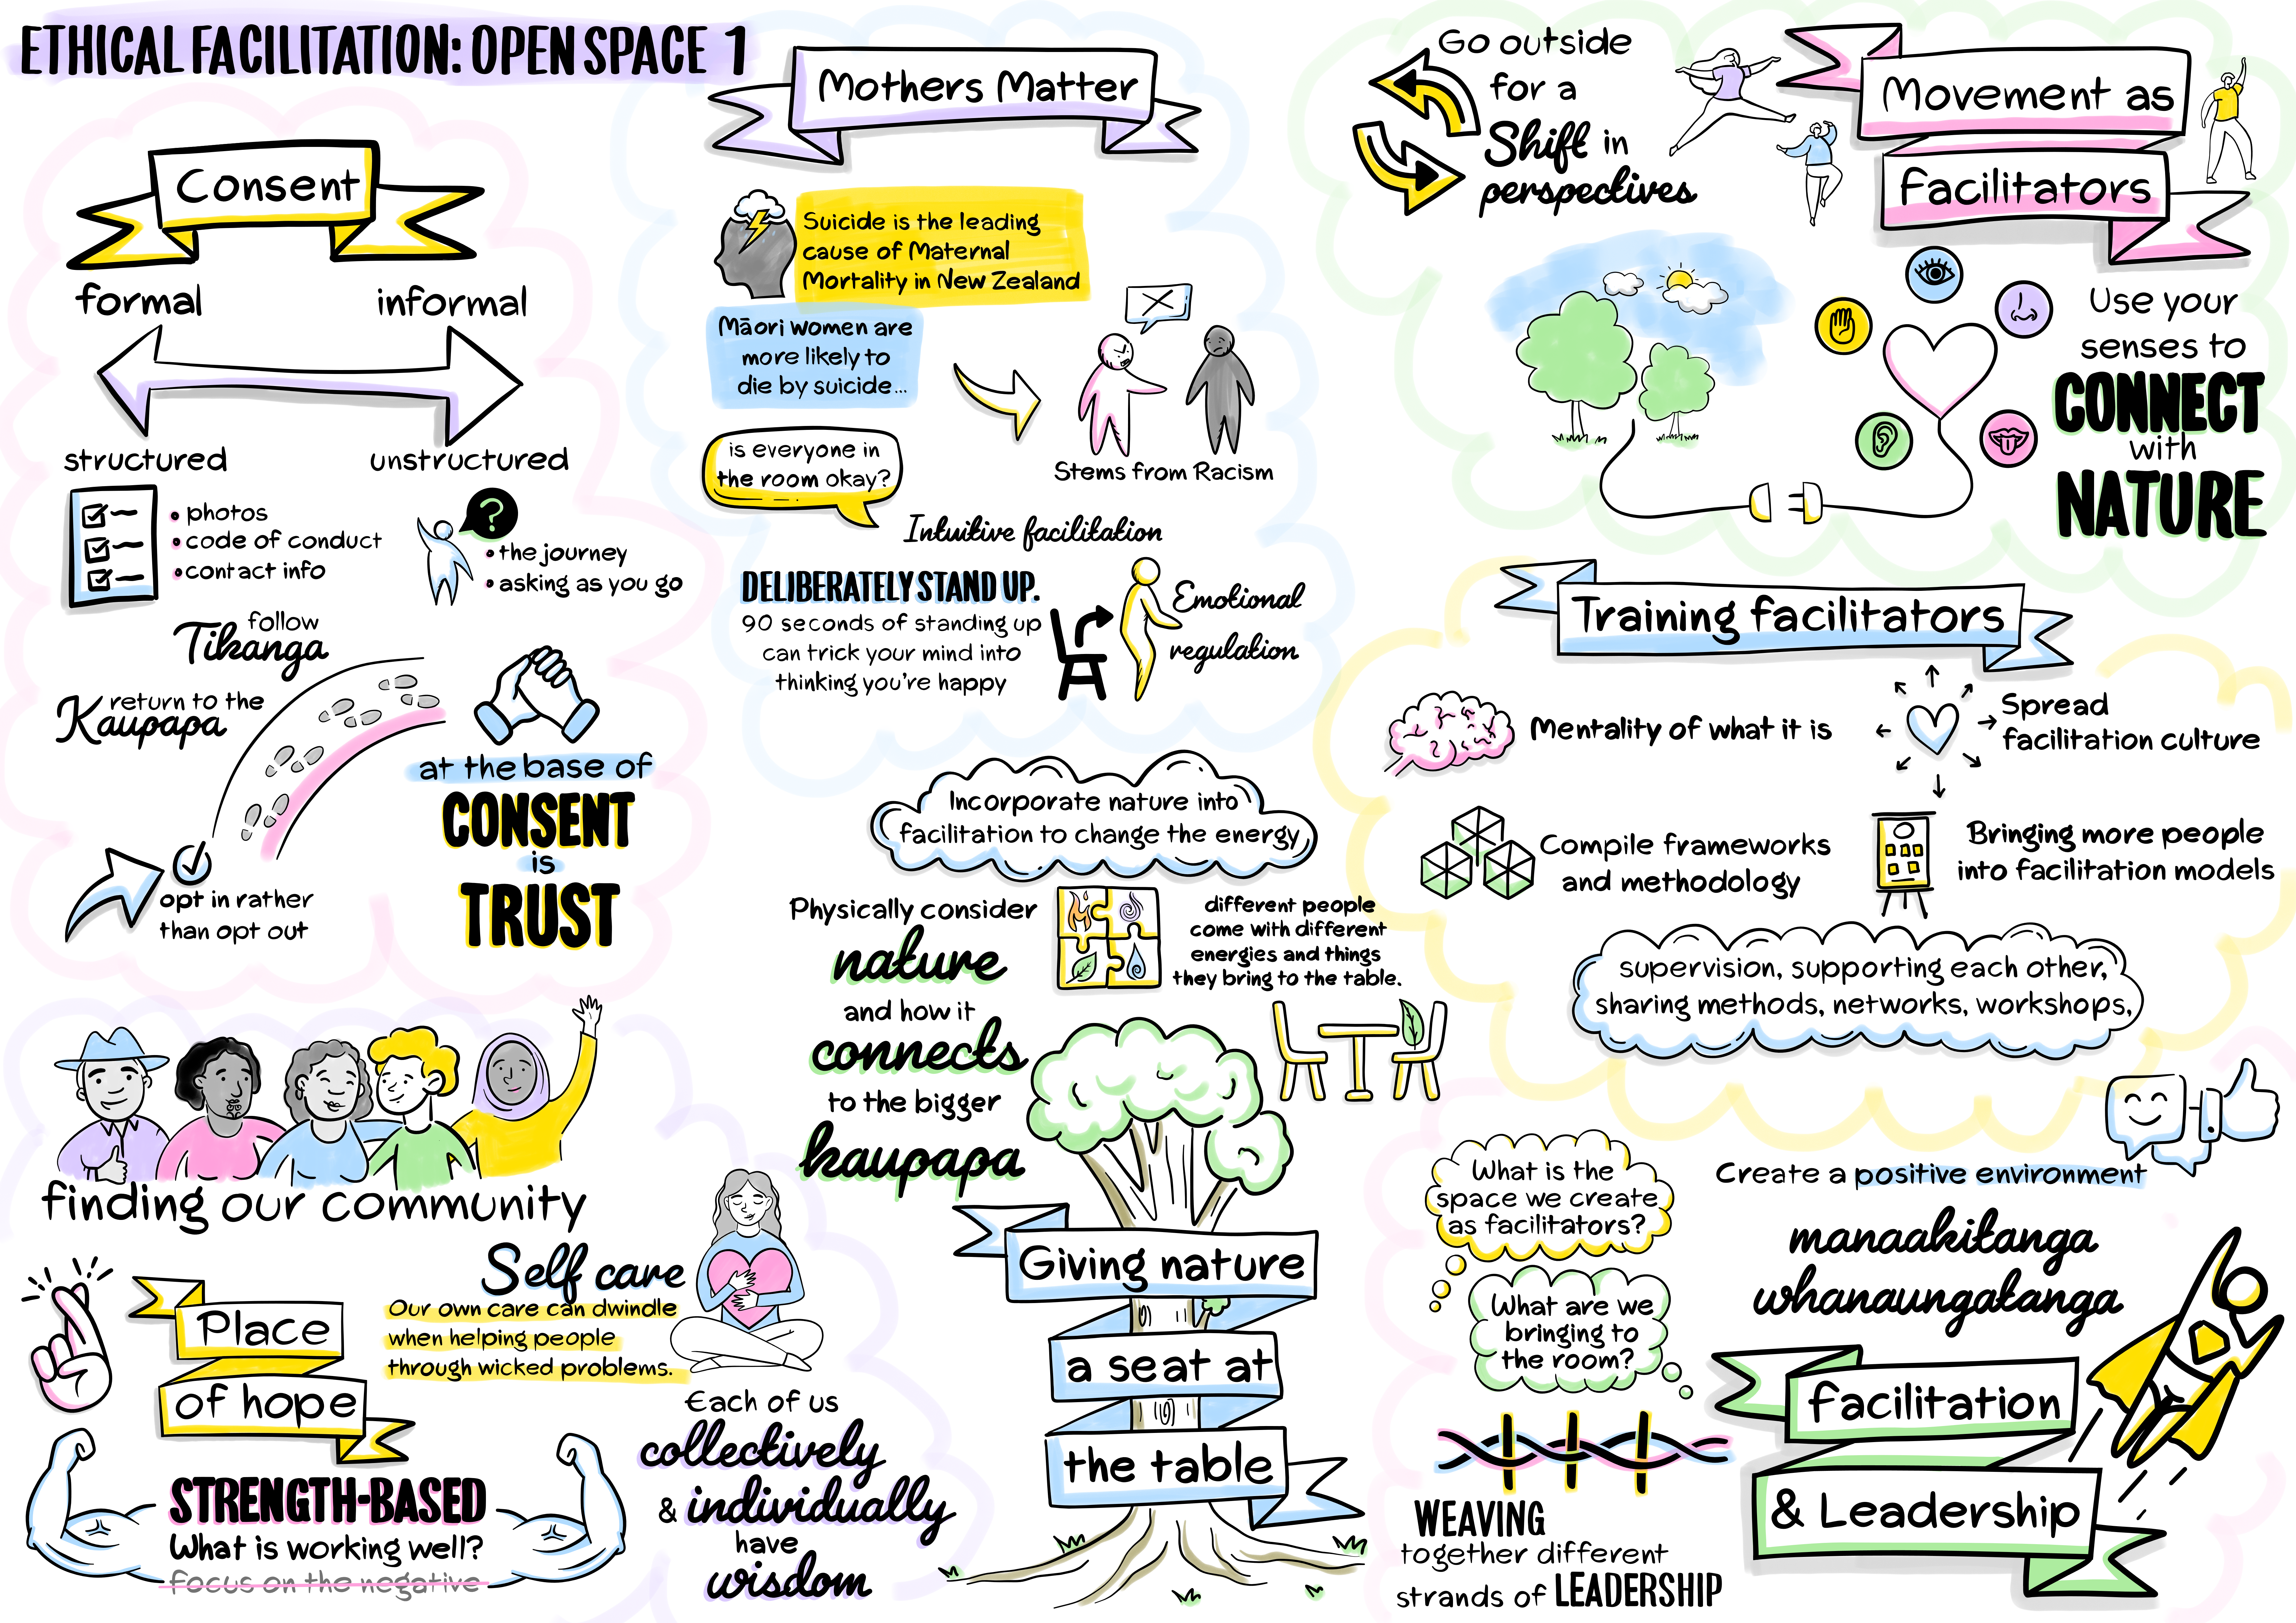 ETHICAL FACILITATION: OPEN SPACE 1
Consent
formal
informal
structured
unstructured
• photos
• code of conduct
• contact info
?
• the journey
• asking as you go
follow
Tikanga
return to the
Kaupapa
opt in rather
than opt out
at the base of
CONSENT
is
TRUST
Mothers Matter
Suicide is the leading
cause of Maternal
Mortality in New Zealand
Māori women are
more likely to
die by suicide...
Stems from Racism
is everyone in
the room okay?
Intuitive facilitation
DELIBERATELY STAND UP.
90 seconds of standing up
can trick your mind into
thinking you're happy
Emotional
regulation
Go outside
for a
Shift in
perspectives
Movement as
Facilitators
Use your
senses to
CONNECT
with
NATURE
Training facilitators
Mentality of what it is
Spread
facilitation culture
Compile frameworks
and methodology
Bringing more people
into facilitation models
supervision, supporting each other,
sharing methods, networks, workshops,
Incorporate nature into
facilitation to change the energy
Physically consider
nature
and how it
connects
to the bigger
kaupapa
different people
come with different
energies and things
they bring to the table.
Giving nature
a seat at
the table
finding our community
Place
of hope
Self care
Our own care can dwindle
when helping people
through wicked problems.
STRENGTH-BASED
What is working well?
focus on the negative
Each of us
collectively
& individually
have
wisdom
What is the
space we create
as facilitators?
What are we
bringing to
the room?
Create a positive environment
manaakitanga
whanaungatanga
facilitation
& Leadership
WEAVING
together different
strands of LEADERSHIP